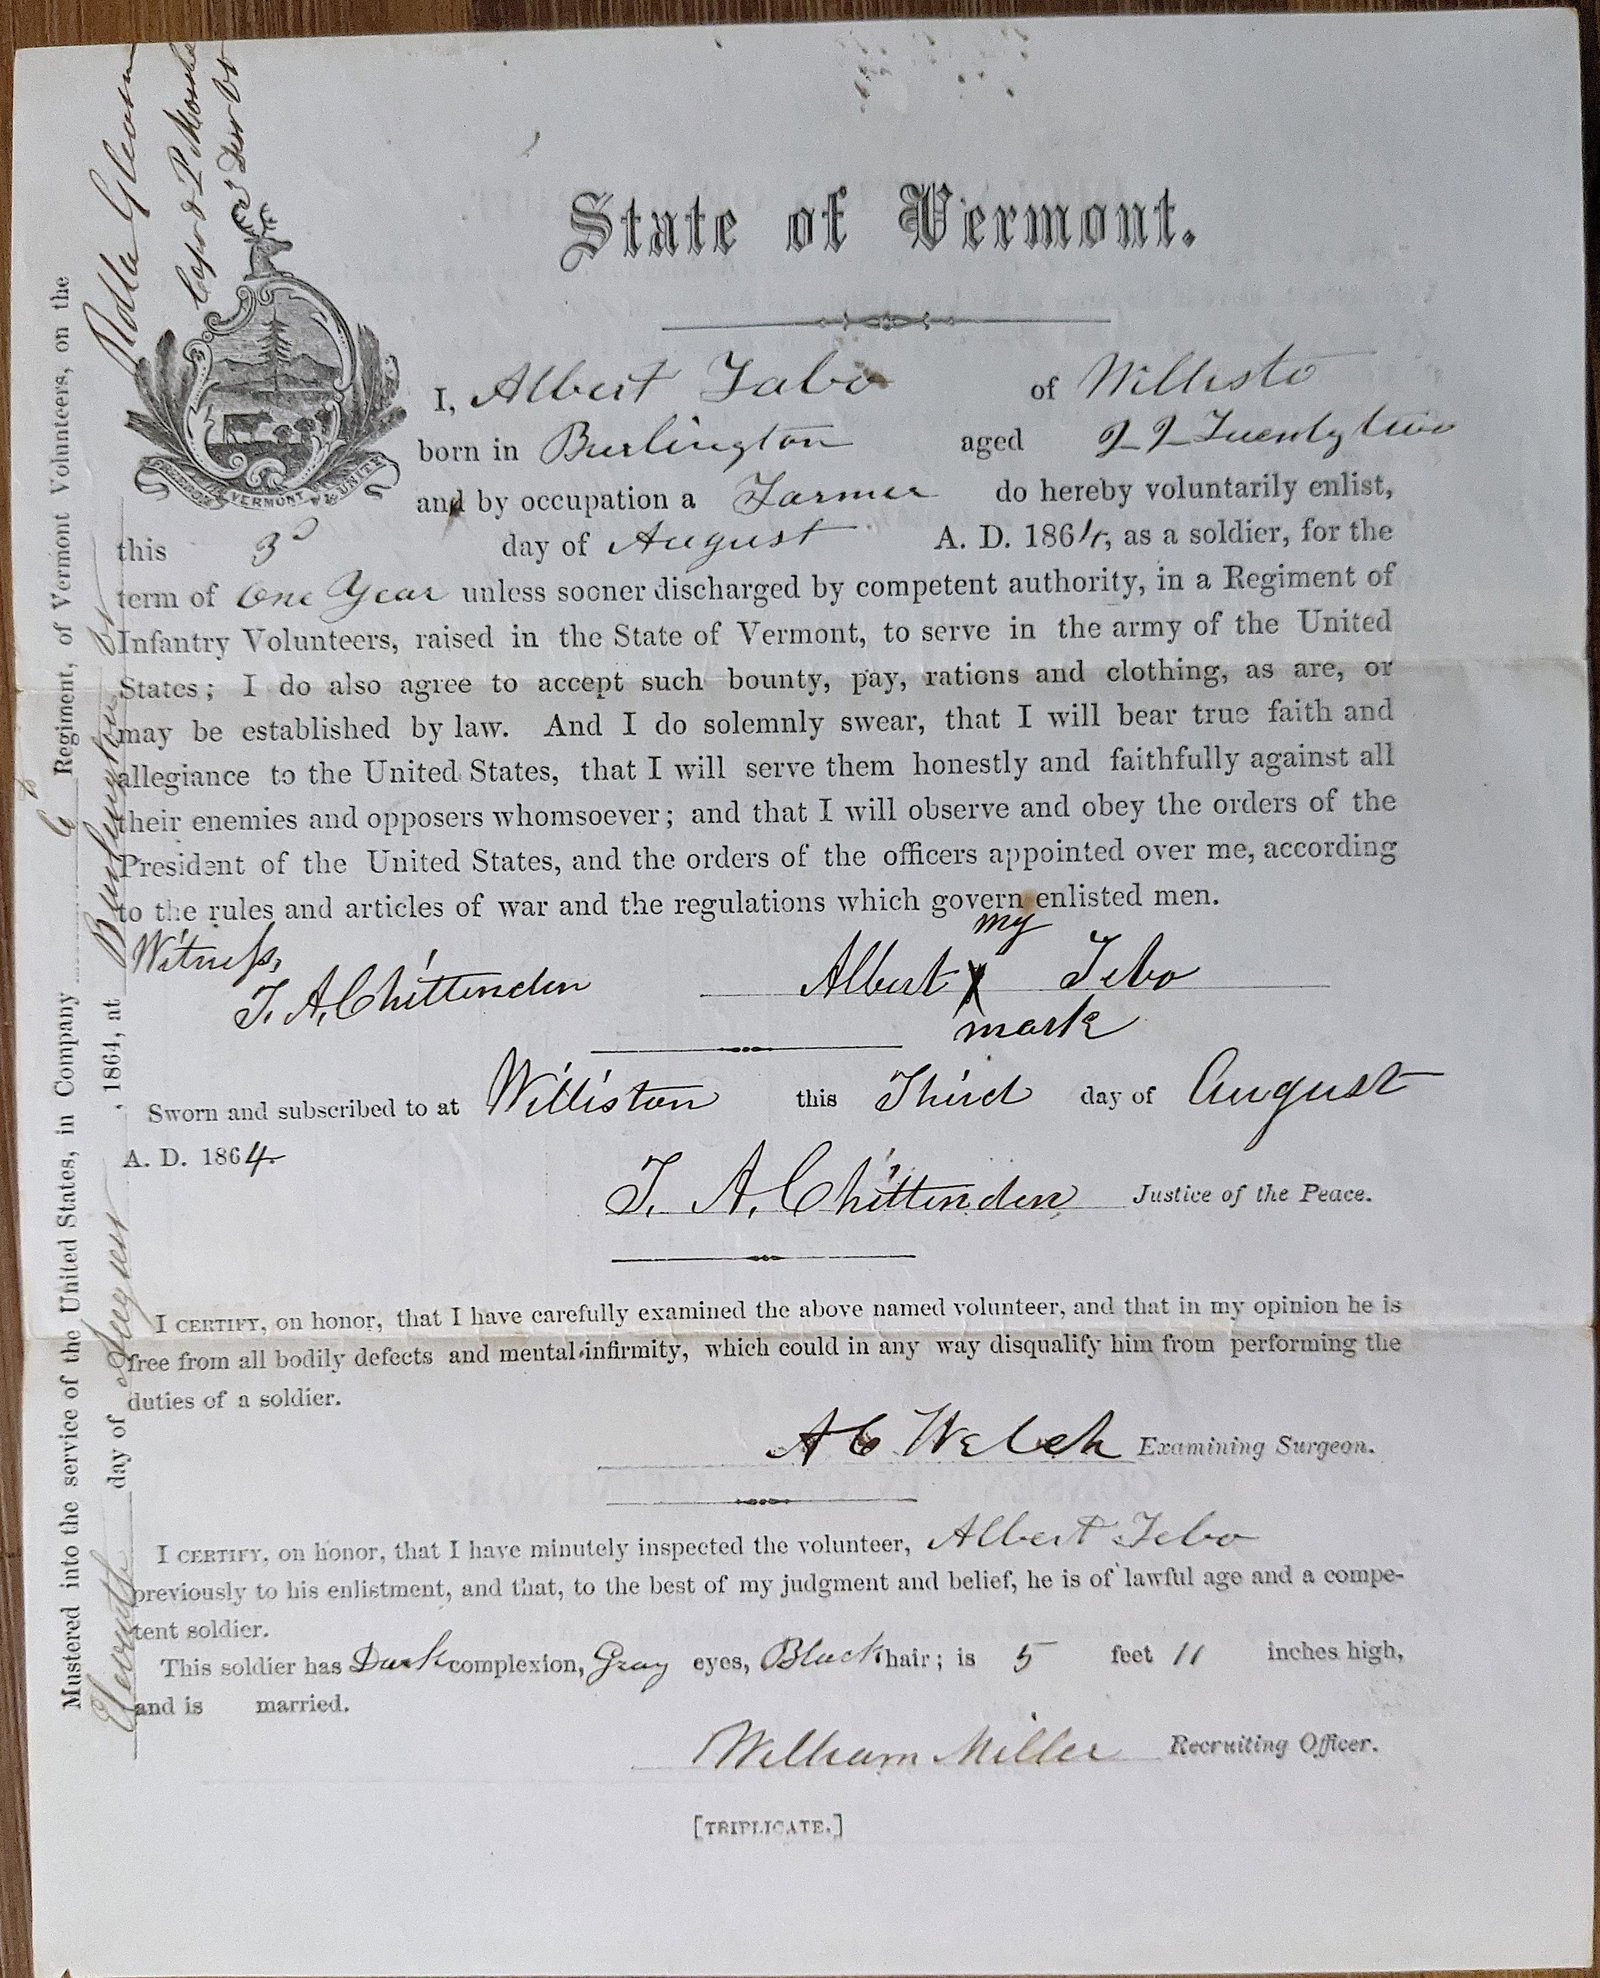 State of Vermont.
I, Albert Tabo of Willisto
born in Burlington aged 22 Twenty two
and by occupation a Farmer do hereby voluntarily enlist,
this 3d day of August A. D. 1864, as a soldier, for the
term of One Year unless sooner discharged by competent authority, in a Regiment of
Infantry Volunteers, raised in the State of Vermont, to serve in the army of the United
States; I do also agree to accept such bounty, pay, rations and clothing, as are, or
may be established by law. And I do solemnly swear, that I will bear true faith and
allegiance to the United States, that I will serve them honestly and faithfully against all
their enemies and opposers whomsoever; and that I will observe and obey the orders of the
President of the United States, and the orders of the officers appointed over me, according
to the rules and articles of war and the regulations which govern enlisted men.
Witness, my
T. A. Chittenden Albert X Tebo
mark
Sworn and subscribed to at Williston this Third day of August
A. D. 1864.
T. A. Chittenden Justice of the Peace.
I CERTIFY, on honor, that I have carefully examined the above named volunteer, and that in my opinion he is
free from all bodily defects and mental infirmity, which could in any way disqualify him from performing the
duties of a soldier.
A C Welch Examining Surgeon.
I CERTIFY, on honor, that I have minutely inspected the volunteer, Albert Tebo
previously to his enlistment, and that, to the best of my judgment and belief, he is of lawful age and a compe-
tent soldier.
This soldier has Dark complexion, Gray eyes, Black hair; is 5 feet 11 inches high,
and is married.
William Miller Recruiting Officer.
[TRIPLICATE.]
Mustered into the service of the United States, in Company Regiment, of Vermont Volunteers, on the
Eleventh day of August, 1864, at Burlington Vt
Rolla Gleason
Capt & P Marshal
3 Dist Vt
VERMONT
UNITY